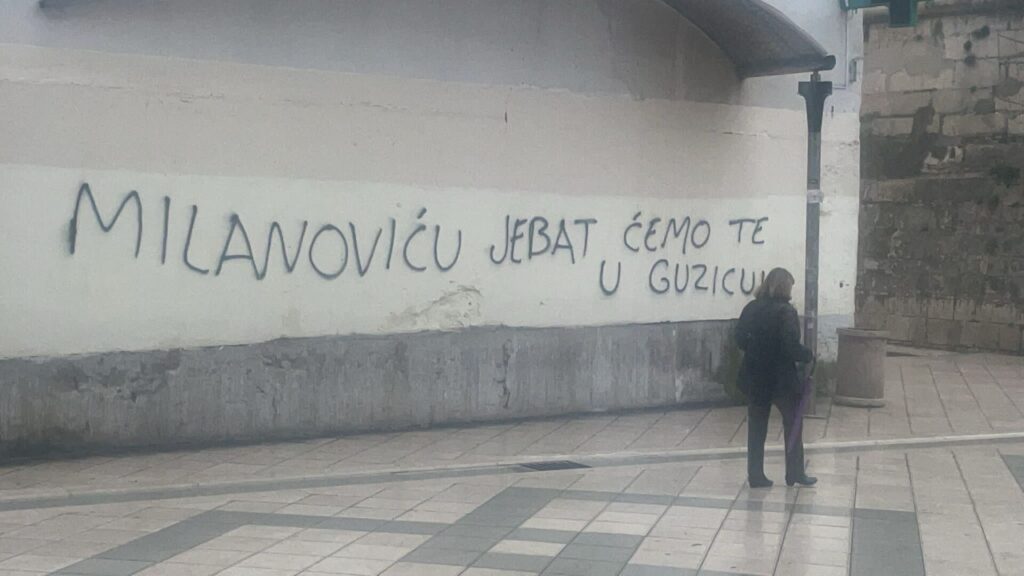 MILANOVIĆU JEBAT ĆEMO TE
U GUZICU